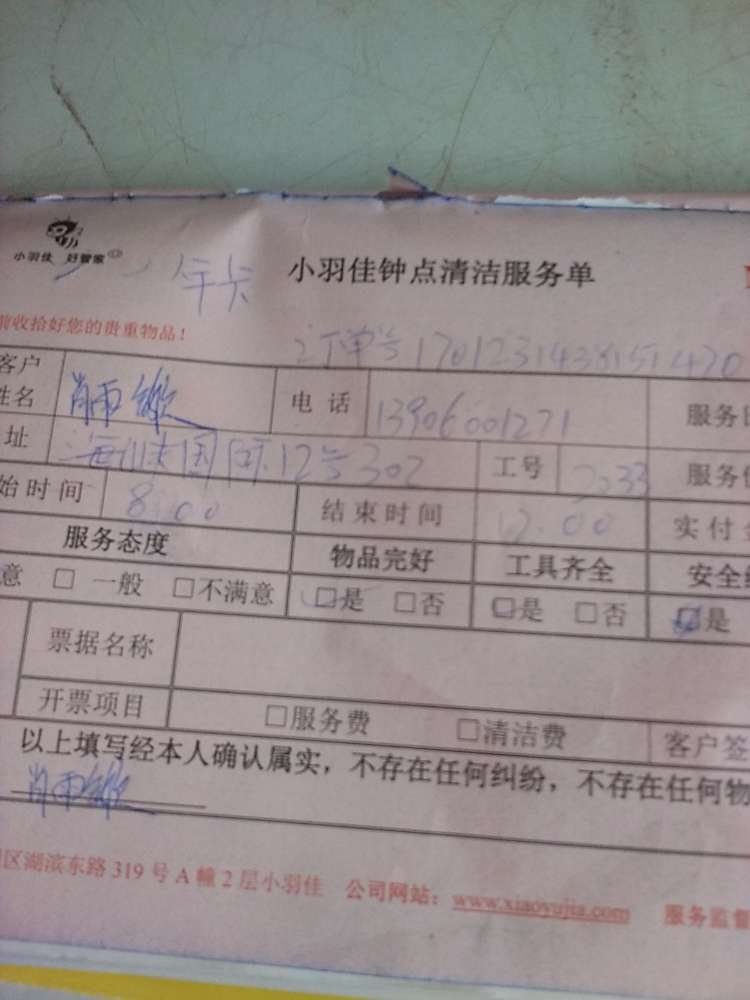 小羽佳 好管家
年卡
小羽佳钟点清洁服务单
前收拾好您的贵重物品！
订单号17012314381551470
客户姓名 肖雨 电话 13906001271 服务
址 国际12号302 工号 2033 服务
始时间 8:00 结束时间 12:00 实付
服务态度 物品完好 工具齐全 安全
意 □一般 □不满意 □是 □否 □是 □否 □是
票据名称
开票项目 □服务费 □清洁费 客户签
以上填写经本人确认属实，不存在任何纠纷，不存在任何物
肖雨
区湖滨东路319号A幢2层小羽佳 公司网站：www.xiaoyujia.com 服务监督